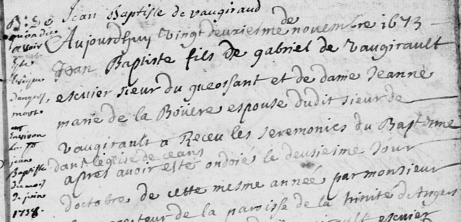 Jean Baptiste de vaugiraud
Aujourdhuy vingt deuxiesme de novembre 1673
Jean Baptiste fils de gabriel de Vaugirault
escuier sieur du et de dame Jeanne
marie de la Bouere espouse dudit sieur de
vaugirault a Receu les seremonies du Baptesme
dans leglise de ceans
apres avoir esté ondoié le deusiesme Jour
d'octobre de cette mesme année par monsieur
de la paroisse de la trinité d'Angers
escuier
evesque
d'angers
mort
environ
le
jean
Baptiste
du mois
de juin
1758